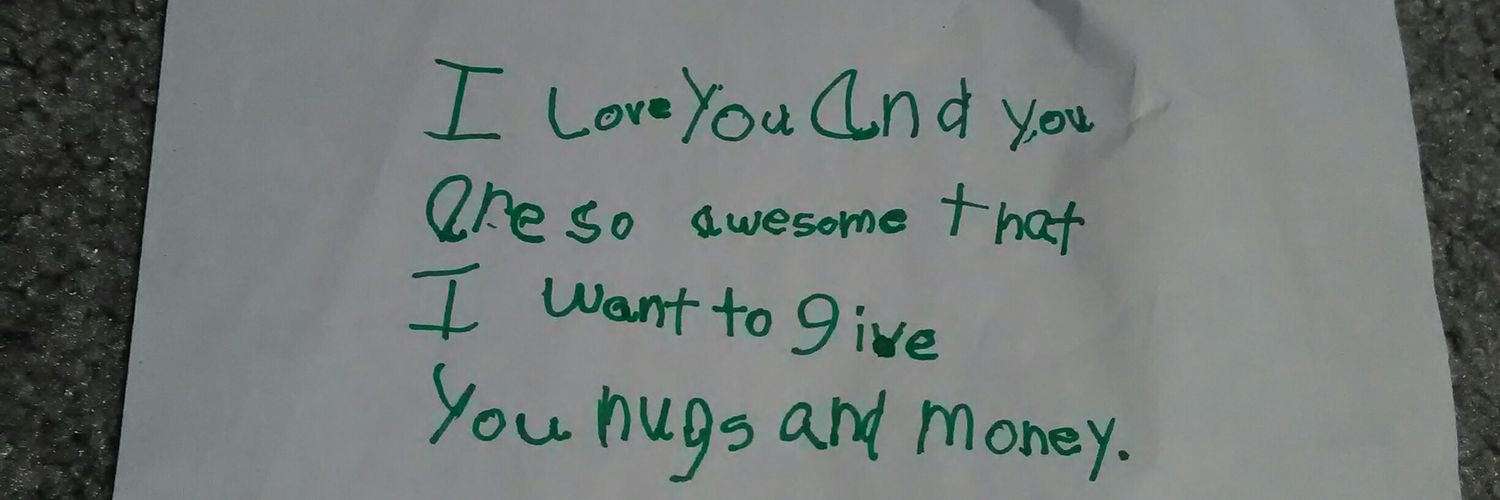 I Love You And you
are so awesome that
I want to give
You hugs and money.